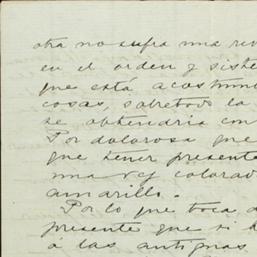 otra no sufra una rev
en el orden y siste
que está acostum
cosas, sobretodo la
se obtendria con
Por dolorosa que
que tener presente
una vez colorad
amarillo.
Por lo que toca a
presente que si
á las antiguas